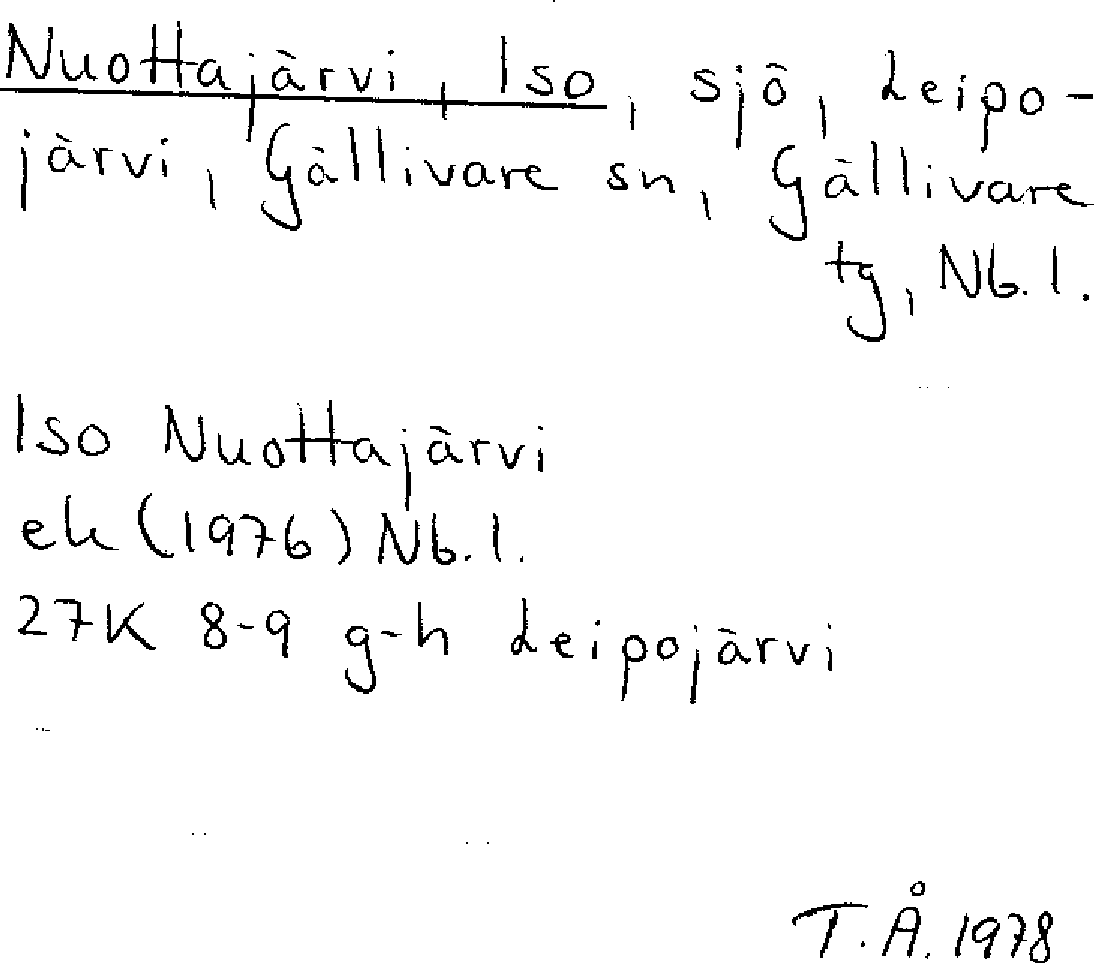 Nuottajärvi, Iso, sjö, Leipo-
järvi, Gällivare sn, Gällivare
tg, Nb.l.
Iso Nuottajärvi
ek (1976) Nb.l.
27K 8-9 g-h Leipojärvi
T.Å. 1978